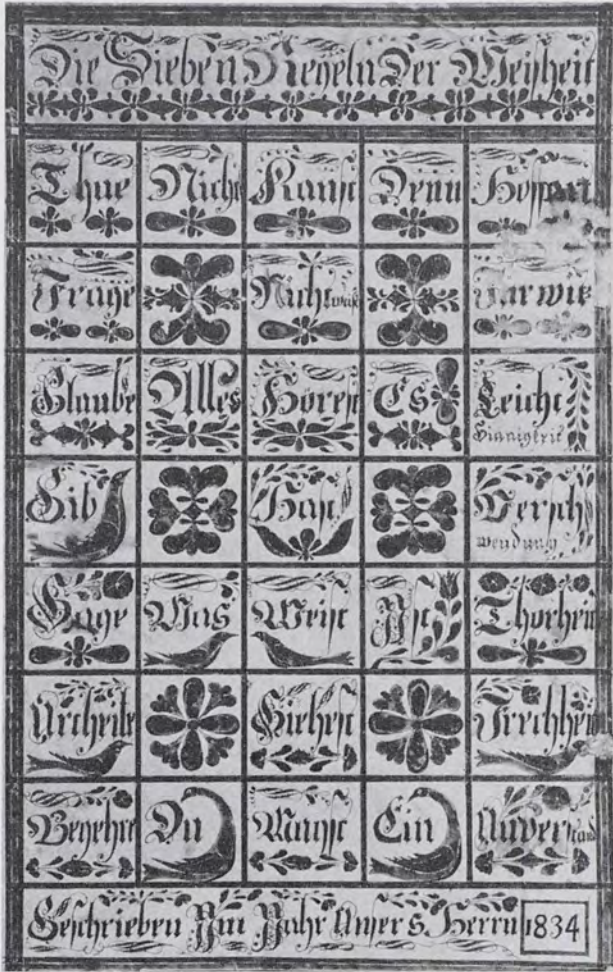 Die Sieben Regeln Der Weisheit
Thue Nicht Kanst Denn Hoffart
Frage Nicht Farwitz
Glaube Alles Horest Es Leicht
Sinnigkeit
Gib Hast Versch
wendung
Sage Was Weist Ist Thorheit
Urtheile Siehest Frechheit
Begehre Du Magst Ein Unverstand
Geschrieben Im Jahr Unsers Herrn 1834